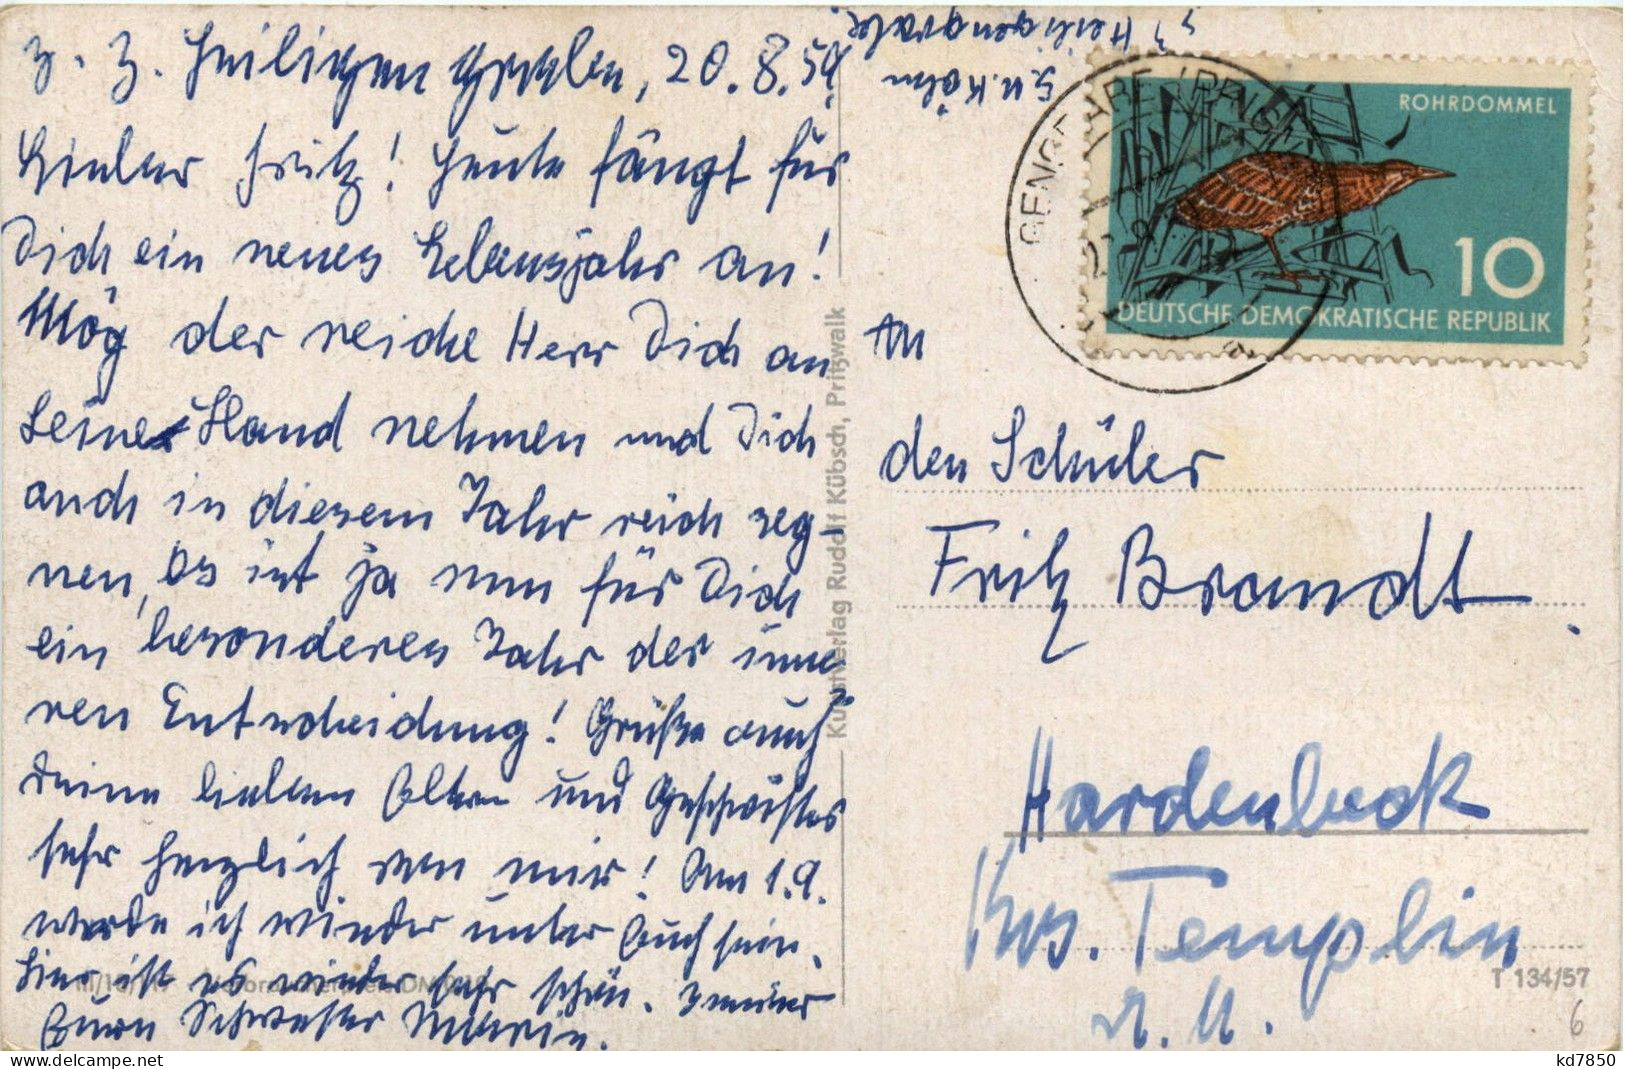 z. Z. Heiligengrabe, 20.8.59.
Lieber Fritz! Heute fängt für
Dich ein neues Lebensjahr an!
Mög der reiche Herr Dich an
Seiner Hand nehmen und Dich
auch in diesem Jahr reich seg-
nen, es ist ja nun für Dich
ein besonderes Jahr der inne-
ren Entscheidung! Grüße auch
Deine lieben Eltern und Geschwister
sehr herzlich von mir! Am 1.9.
werde ich wieder unter Euch sein.
Hier ist es wieder sehr schön. Immer
Eure Schwester Marie.
Heiligengrabe
Kunstverlag Rudolf Kübsch, Pritzwalk
ROHRDOMMEL
10
DEUTSCHE DEMOKRATISCHE REPUBLIK
An
den Schüler
Fritz Brandt.
Hardenbeck
Krs. Templin
U. M.
T 134/57
6
kd7850